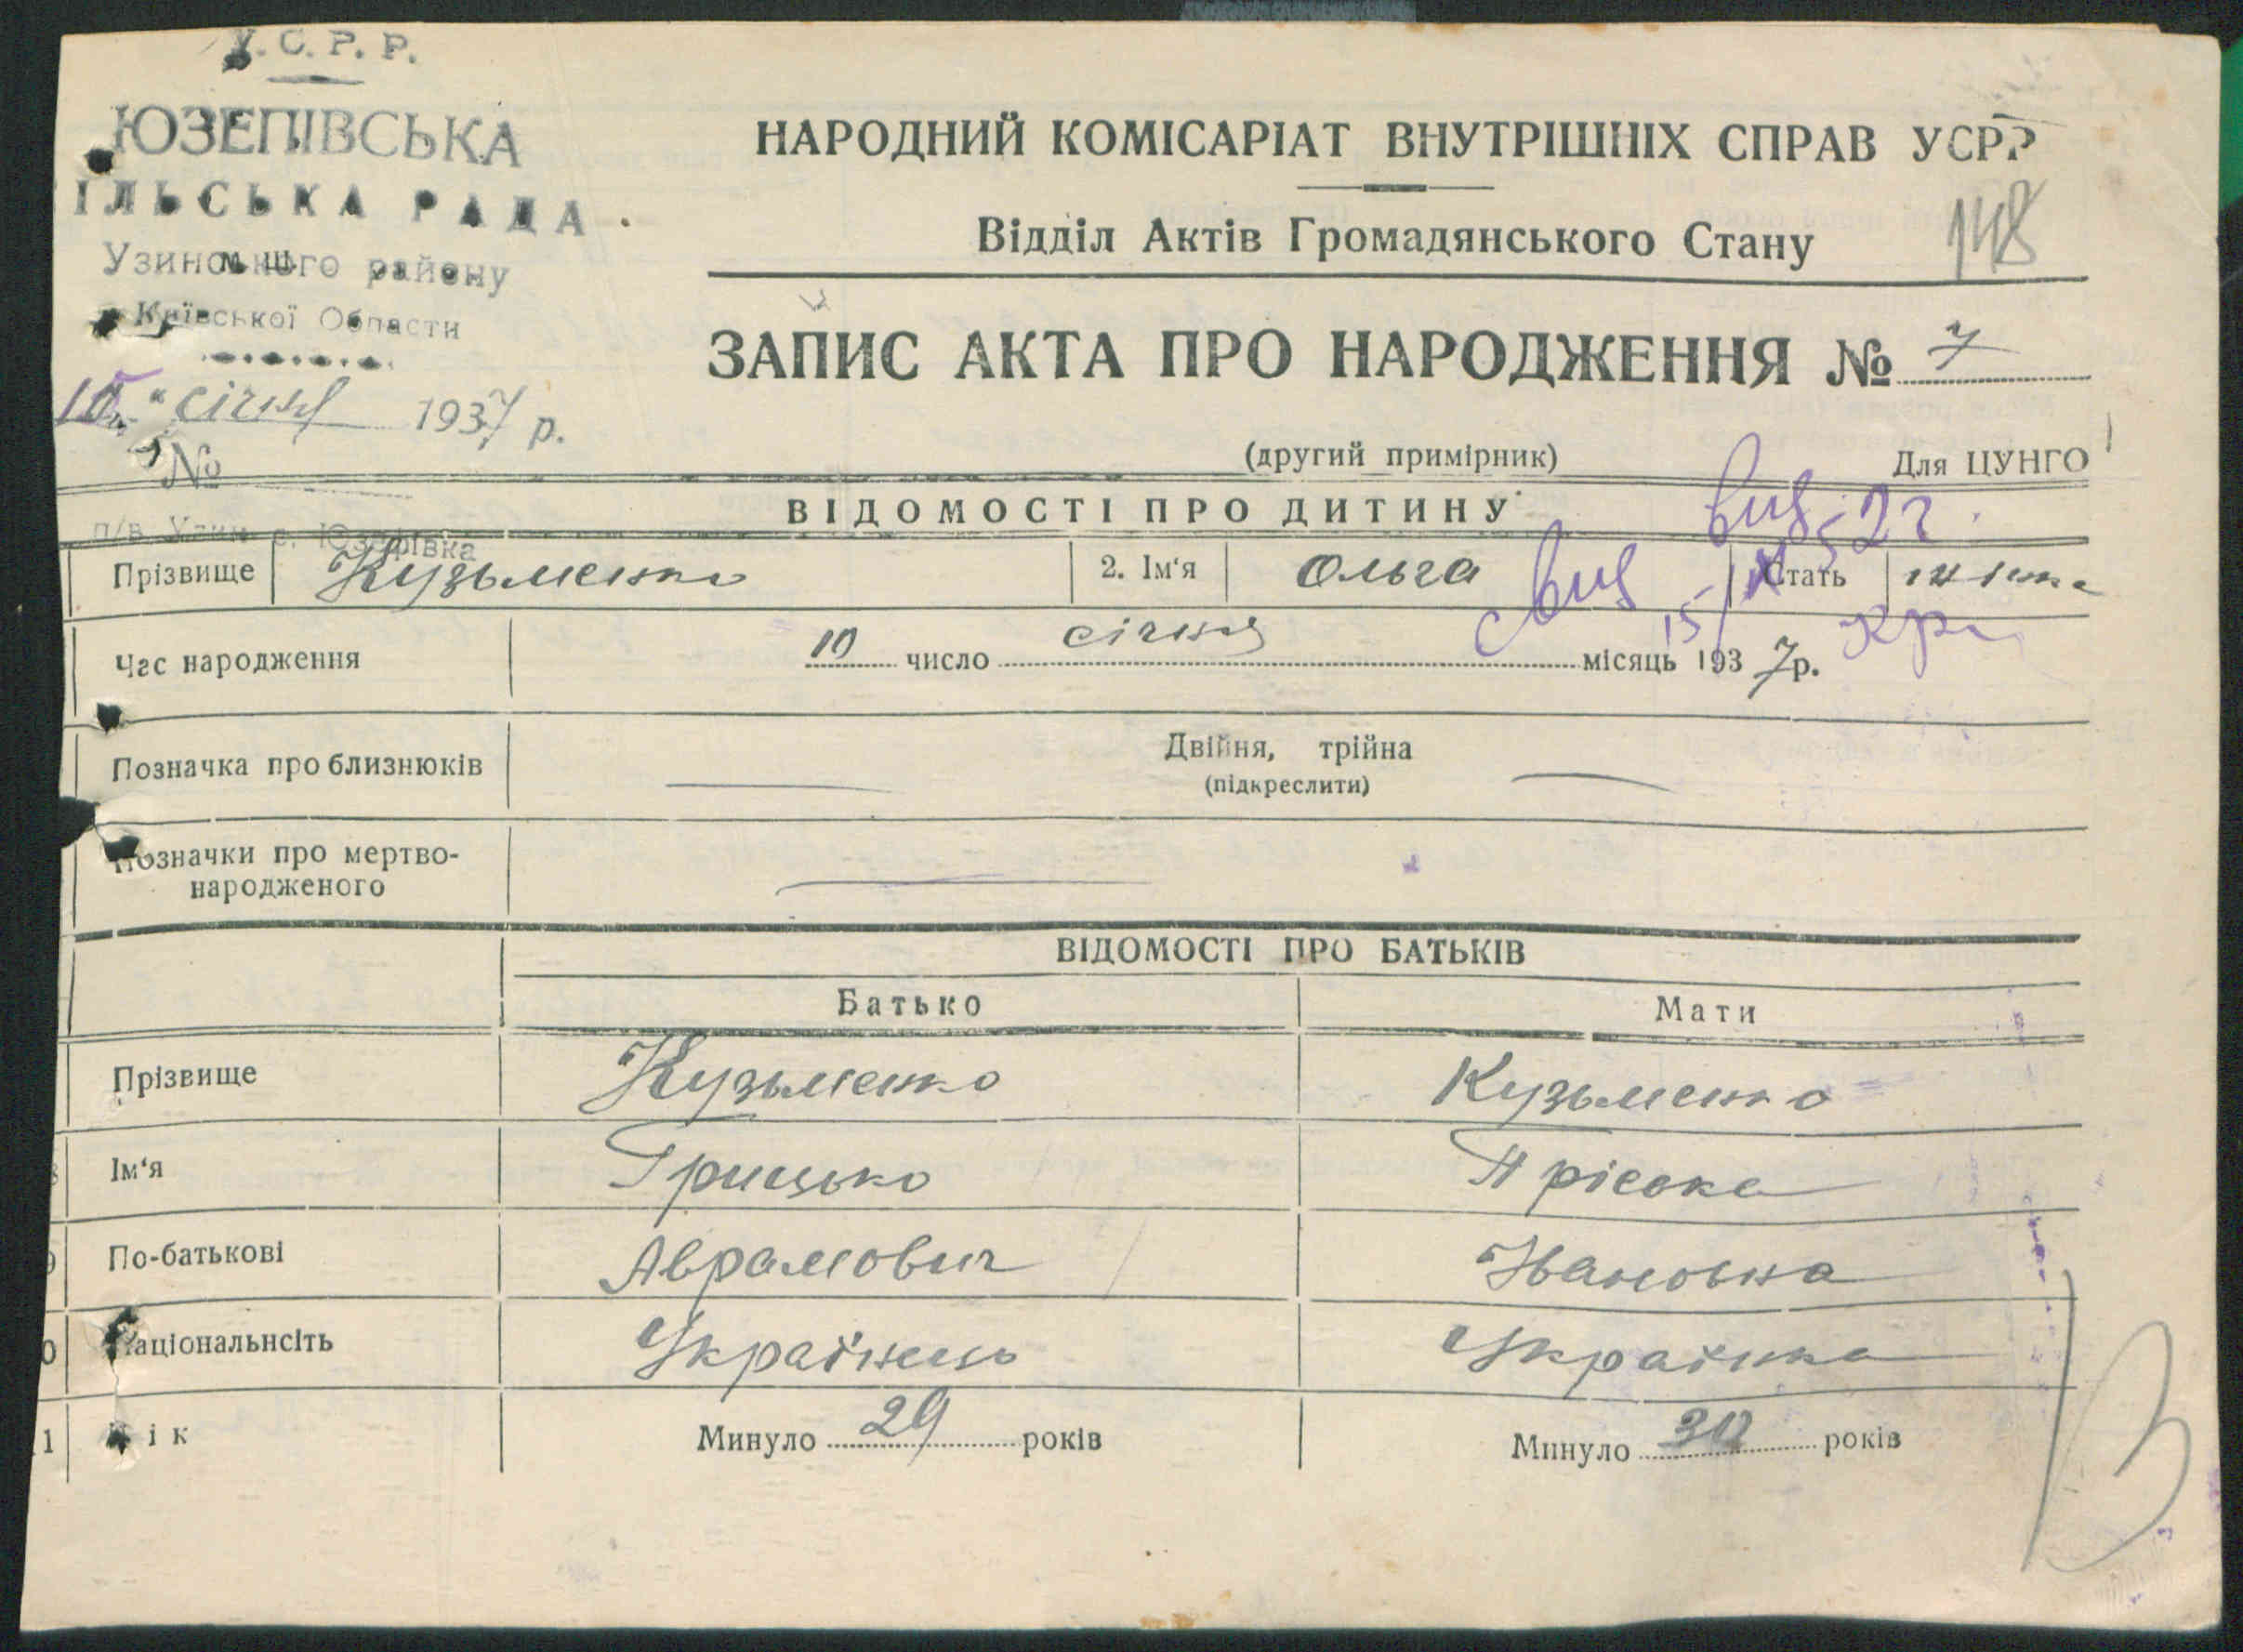 У.С.Р.Р.
ЮЗЕПІВСЬКА
ІЛЬСЬКА РАДА
Узинського району
Київської Области
10 " січня 1937 р.
№
п/в Узин с. Юзефівка
НАРОДНИЙ КОМІСАРІАТ ВНУТРІШНІХ СПРАВ УСРР
Відділ Актів Громадянського Стану
148
ЗАПИС АКТА ПРО НАРОДЖЕННЯ № 7
(другий примірник) Для ЦУНГО
ВІДОМОСТІ ПРО ДИТИНУ
Прізвище Кузьменко 2. Ім'я Ольга Стать жінка
Час народження 10 число січня місяць 1937 р.
Позначка про близнюків Двійня, трійна
(підкреслити)
Позначки про мертво-
народженого
ВІДОМОСТІ ПРО БАТЬКІВ
Батько Мати
Прізвище Кузьменко Кузьменко
Ім'я Грицько Пріська
По-батькові Аврамович Івановна
Національнсіть Українець Українка
11 Вік Минуло 29 років Минуло 30 років